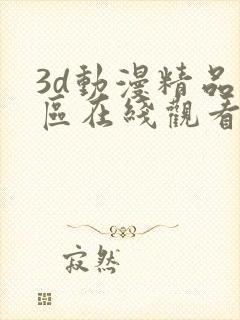 3d動漫精品
區在綫觀看
寂然